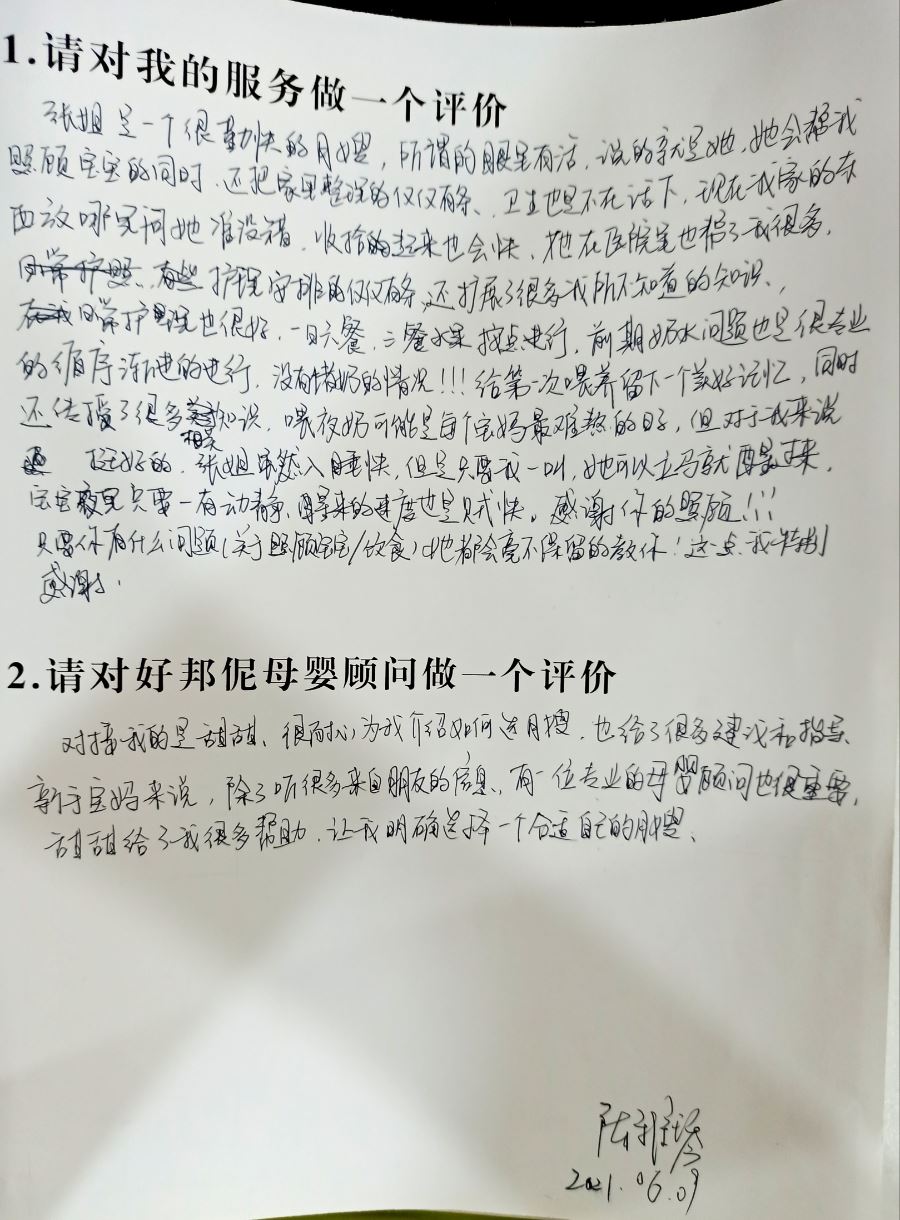 1.请对我的服务做一个评价
张姐是一个很勤快的月嫂，所谓的眼里有活，说的就是她，她会帮我
照顾宝宝的同时，还把家里整理的仅仅有条、卫生也是不在话下，现在我家的东
西放哪里问她准没错，收拾起来也会快、她在医院里也帮了我很多，
护理安排的仅仅有条，还扩展了很多我所不知道的知识、
日常护理也很好，一日六餐，三餐水果按点进行，前期奶水问题也是很专业
的循序渐进的进行，没有堵奶的情况！！！给第一次喂养留下一个美好记忆，同时
还传授了很多相关知识，喂夜奶可能是每个宝妈最难熬的日子，但对于我来说
挺好的，张姐虽然入睡快，但是只要我一叫，她可以立马就醒过来，
宝宝夜里只要一有动静、醒来的速度也是贼快。感谢你的照顾！！！
只要你有什么问题(关于照顾宝宝/饮食)她都会毫不保留的教你！这点我特别
感谢.
2.请对好邦伲母婴顾问做一个评价
对接我的是甜甜、很耐心为我介绍如何选月嫂，也给了很多建议和指导、
新手宝妈来说，除了听很多来自朋友的信息、有一位专业的母婴顾问也很重要，
甜甜给了我很多帮助．让我明确选择一个合适自己的月嫂、
2021.06.09